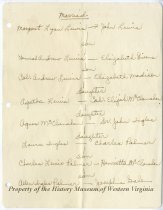 Married
Margaret Lynn Lewis — John Lewis
son
Lewis — Elizabeth
son
Col. Andrew Lewis — Elizabeth Madison
daughter
Agatha Lewis — Col. Elijah McClanahan
daughter
McClanahan — Dr. John Ingles
daughter
Laura Ingles — Charles Palmer
son
Charles Lewis Palmer — McClanahan
son
Palmer —
Property of the History Museum of Western Virginia